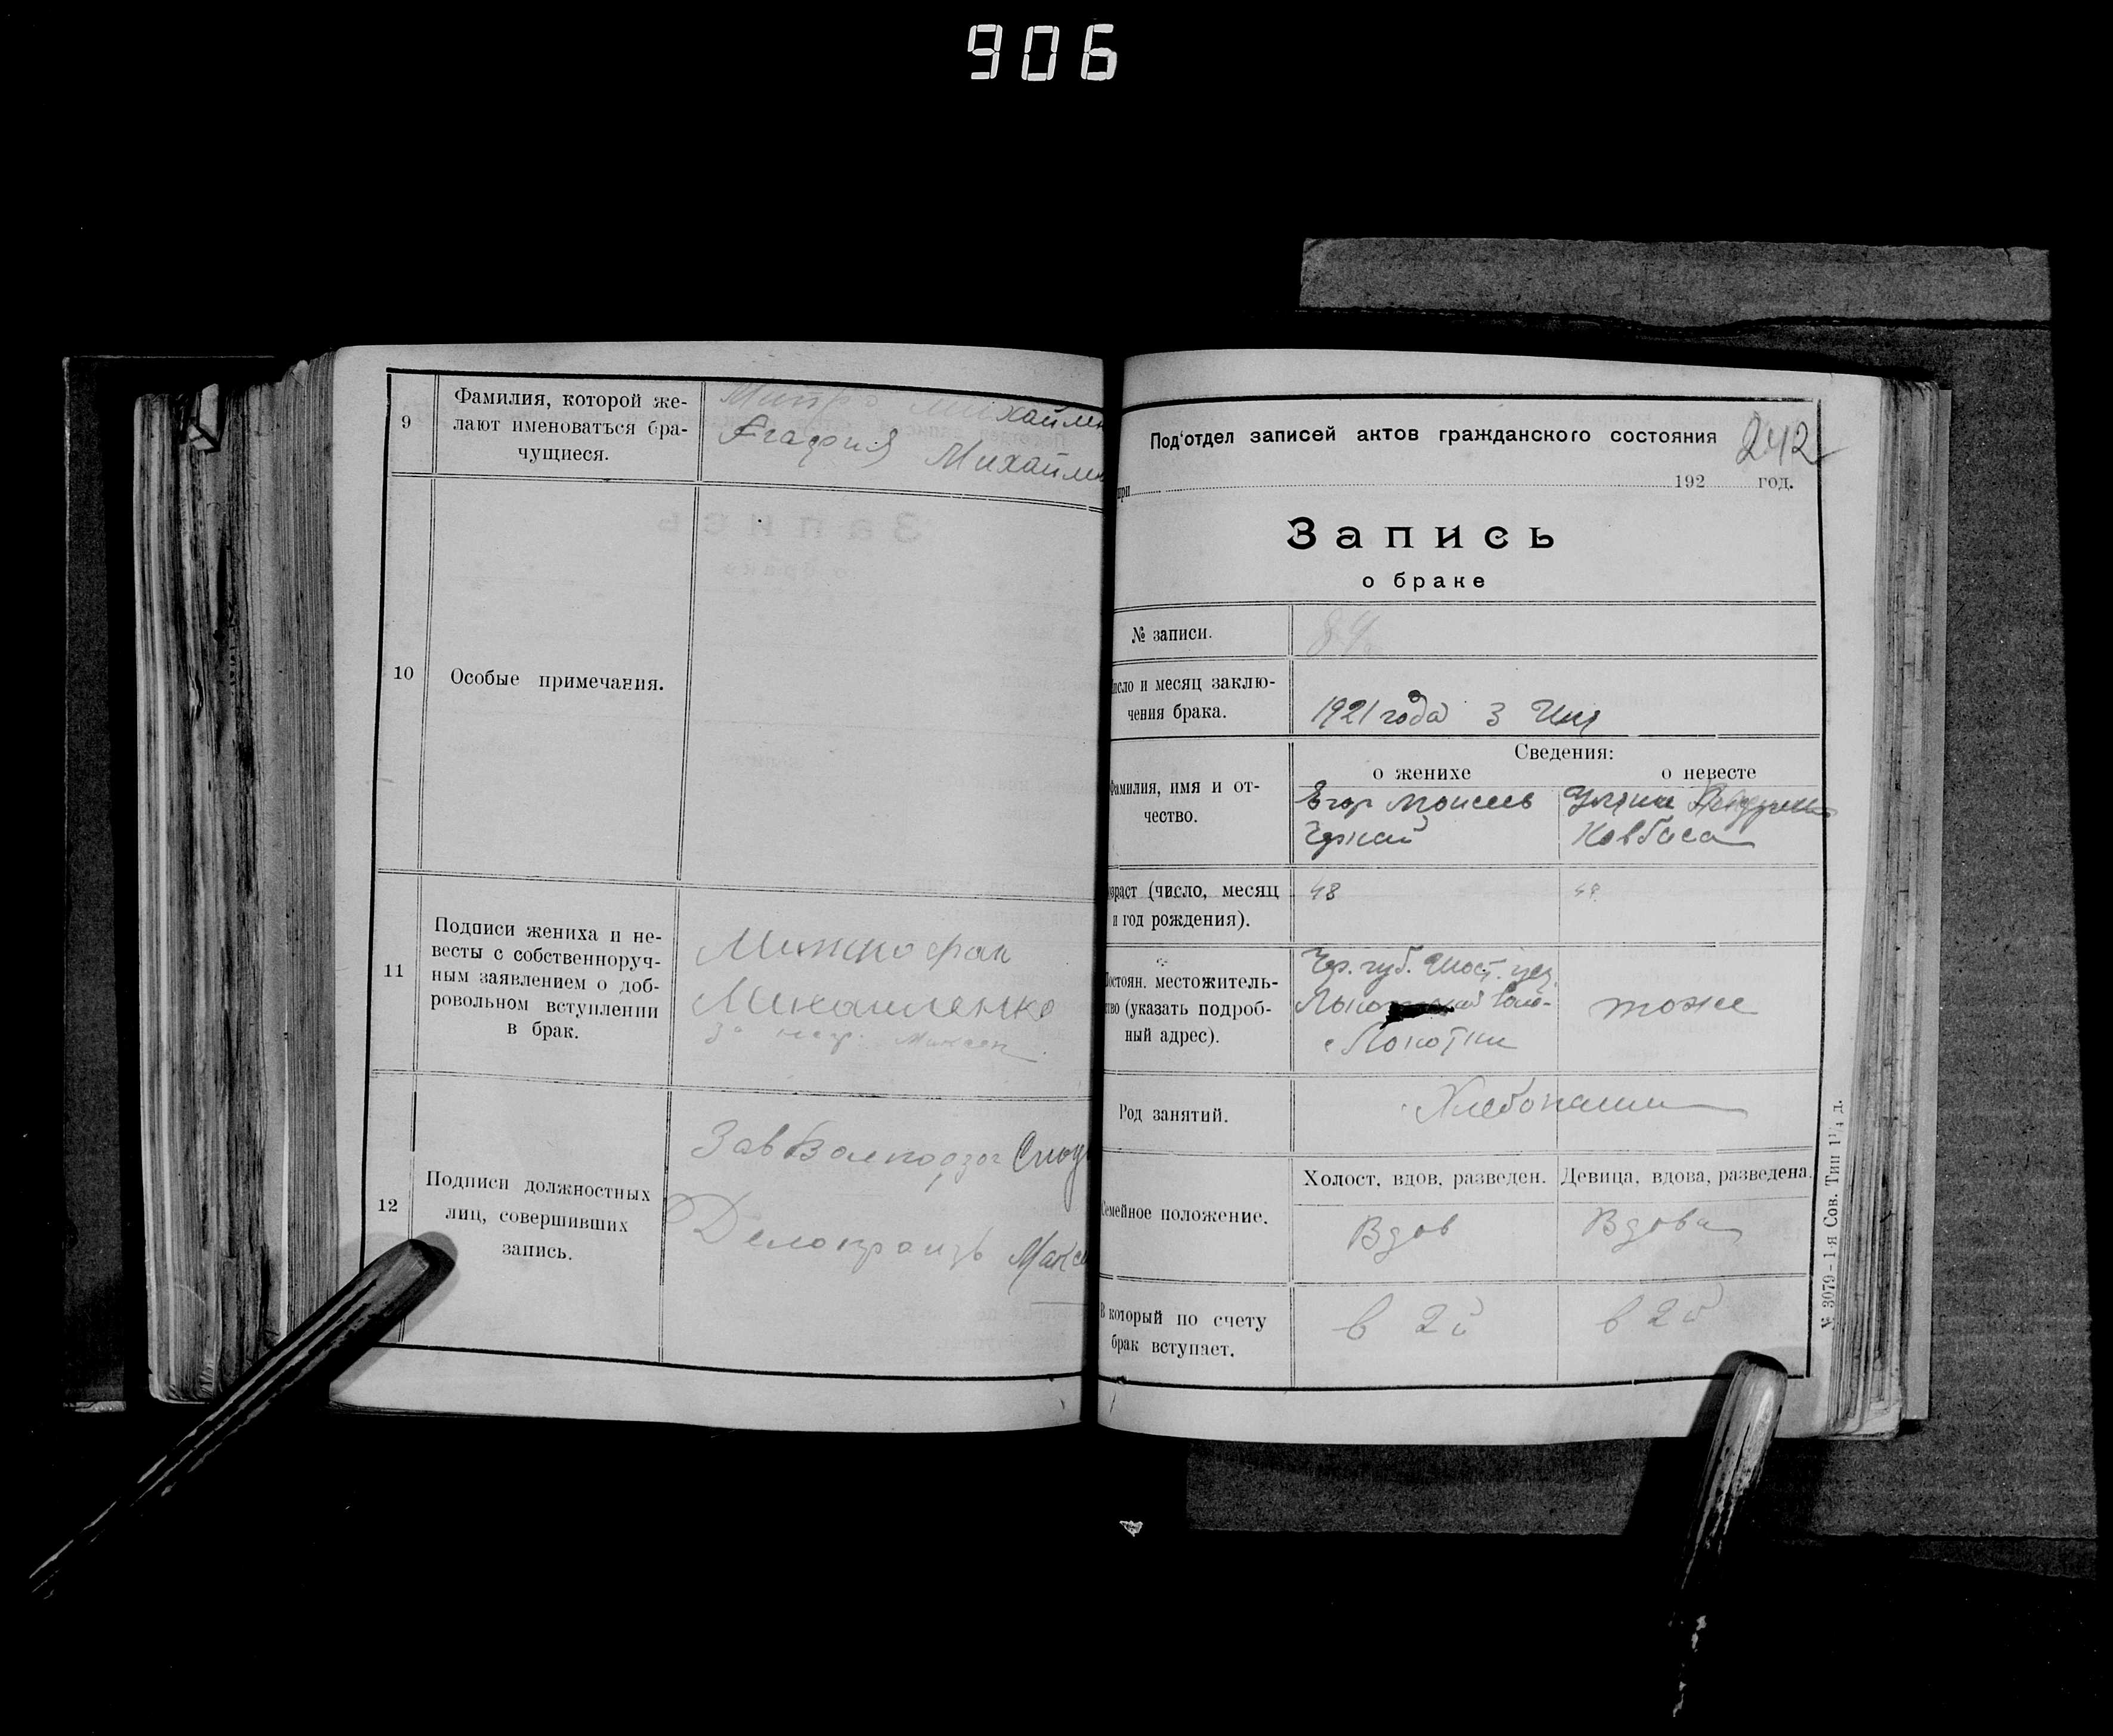 906
9
Фамилия, которой же-
лают именоваться бра-
чущиеся.
Михайлен
Агафия Михайлен
10
Особые примечания.
11
Подписи жениха и не-
весты с собственноруч-
ным заявлением о доб-
ровольном вступлении
в брак.
Митрофан
Михаиленко
за негр.
12
Подписи должностных
лиц, совершивших
запись.
Зав
Делопроизв Макси
Под'отдел записей актов гражданского состояния
242
при 192 год.
Запись
о браке
№ записи.
84
число и месяц заклю-
чения брака.
1921 года 3
Сведения:
о женихе
о невесте
Фамилия, имя и от-
чество.
Егор Моисеев
Черкай
Улянa
Ковбаса
возраст (число, месяц
и год рождения).
48
Постоян. местожитель-
ство (указать подроб-
ный адрес).
Чер. губ. Шост. уез.
с Локотки
тоже
Род занятий.
Хлебопашец
Семейное положение.
Холост, вдов, разведен.
Девица, вдова, разведена.
Вдов
Вдова
В который по счету
брак вступает.
в 2й
в 2й
№ 3079 – 1-я Сов. Тип 1¹/₄ д.